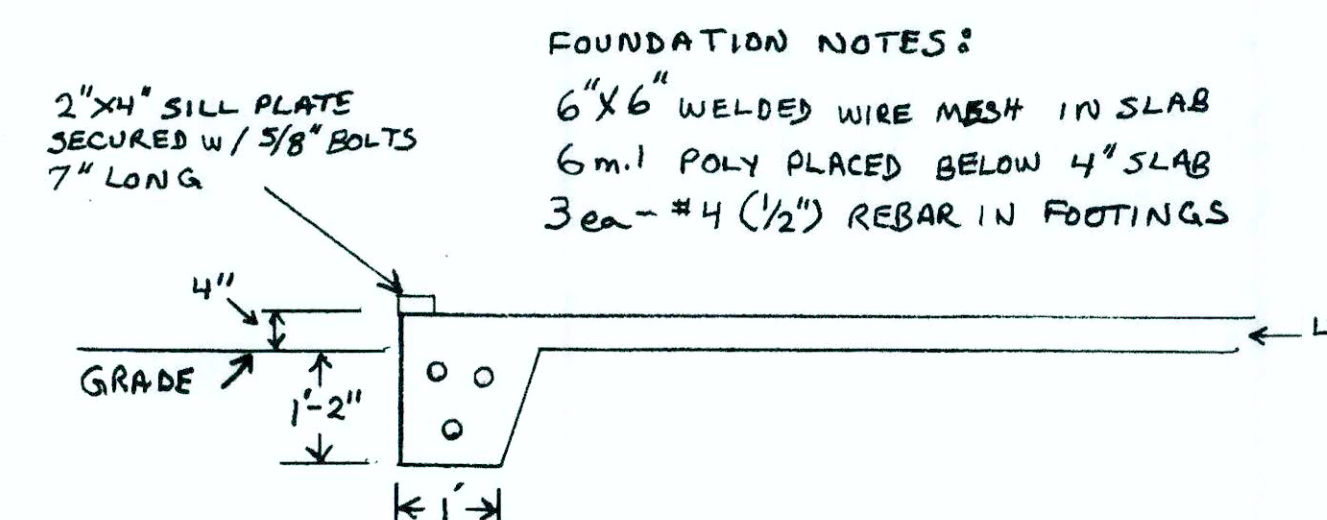 FOUNDATION NOTES:
6"X6" WELDED WIRE MESH IN SLAB
6 m.l POLY PLACED BELOW 4" SLAB
3 ea - #4 (1/2") REBAR IN FOOTINGS
2"X4" SILL PLATE
SECURED w/ 5/8" BOLTS
7" LONG
4"
GRADE
1'-2"
1'